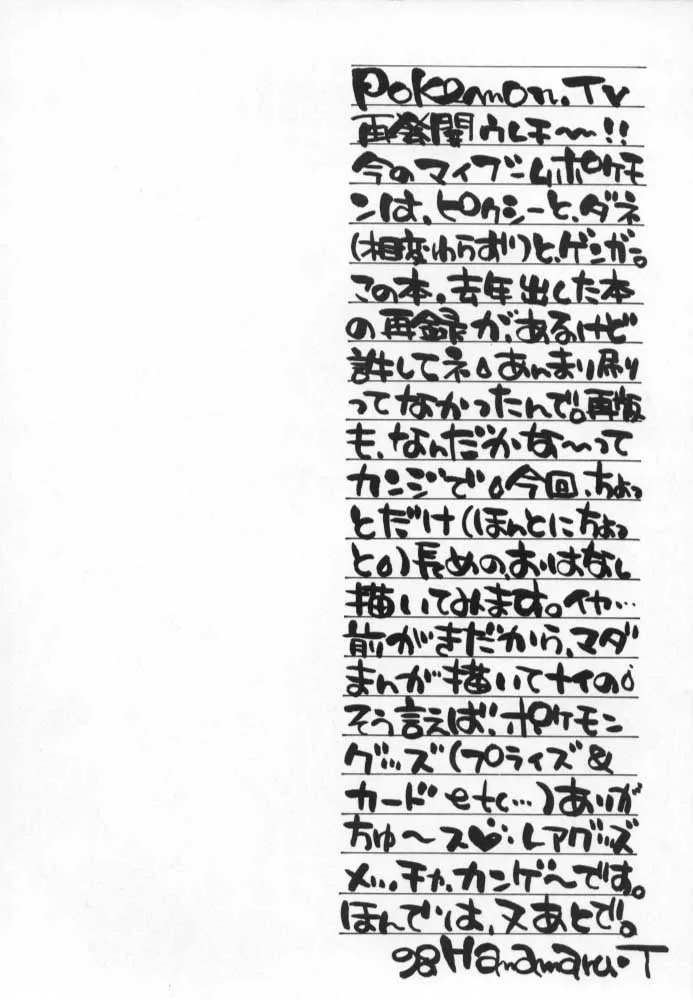 Pokemon.TV
再発開ウレチ〜〜!!
今のマイブームポケモ
ンは、ピクシーと、ダネ
(相変わらず)と、ゲンガー。
この本。去年出した本
の再録が、あるけど
許してネ。あんまり刷り
ってなかったんで。再版
も、なんだかな〜って
カンジで。今回、ちょっ
とだけ(ほんとにちょっ
と。)長めの、おはなし
描いてみます。イヤ…
前がきだから、マダ
まんが描いてナイの。
そう言えば、ポケモン
グッズ(プライズ&
カード etc…)ありが
ちゅ〜ス♥：レアグッズ
メッチャ、カンゲ〜です。
ほんでは、又あとで。
'98 Hanamaru・T